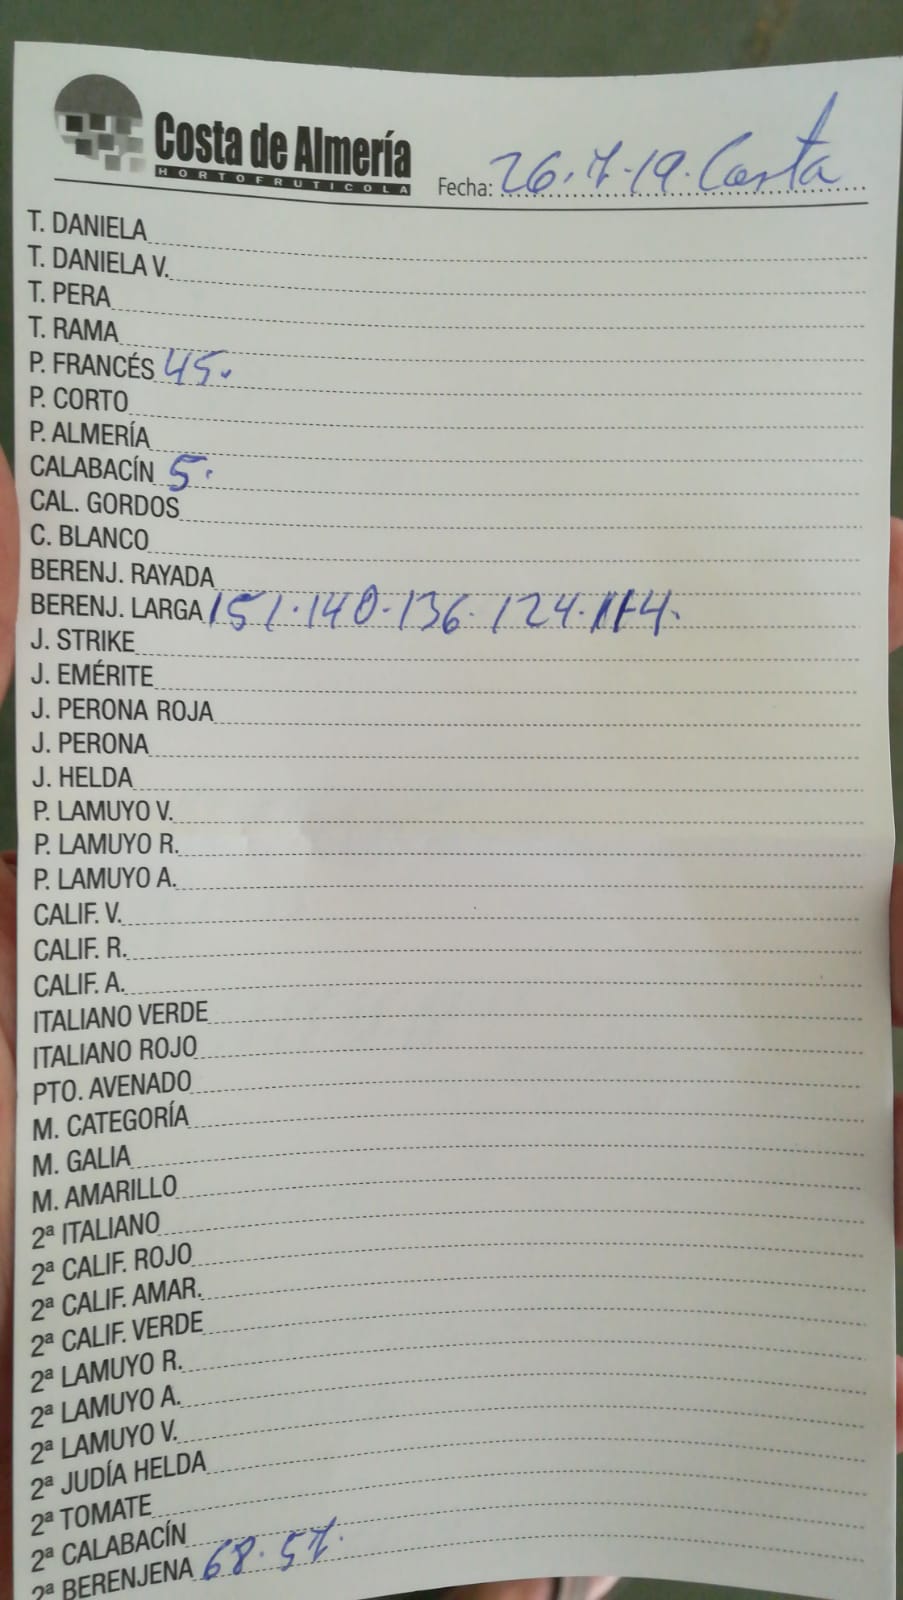 Costa de Almería
HORTOFRUTICOLA
Fecha: 26.7.19. Costa
T. DANIELA
T. DANIELA V.
T. PERA
T. RAMA
P. FRANCÉS 45.
P. CORTO
P. ALMERÍA
CALABACÍN 5.
CAL. GORDOS
C. BLANCO
BERENJ. RAYADA
BERENJ. LARGA 151.140.136.124.114.
J. STRIKE
J. EMÉRITE
J. PERONA ROJA
J. PERONA
J. HELDA
P. LAMUYO V.
P. LAMUYO R.
P. LAMUYO A.
CALIF. V.
CALIF. R.
CALIF. A.
ITALIANO VERDE
ITALIANO ROJO
PTO. AVENADO
M. CATEGORÍA
M. GALIA
M. AMARILLO
2ª ITALIANO
2ª CALIF. ROJO
2ª CALIF. AMAR.
2ª CALIF. VERDE
2ª LAMUYO R.
2ª LAMUYO A.
2ª LAMUYO V.
2ª JUDÍA HELDA
2ª TOMATE
2ª CALABACÍN
2ª BERENJENA 68.57.